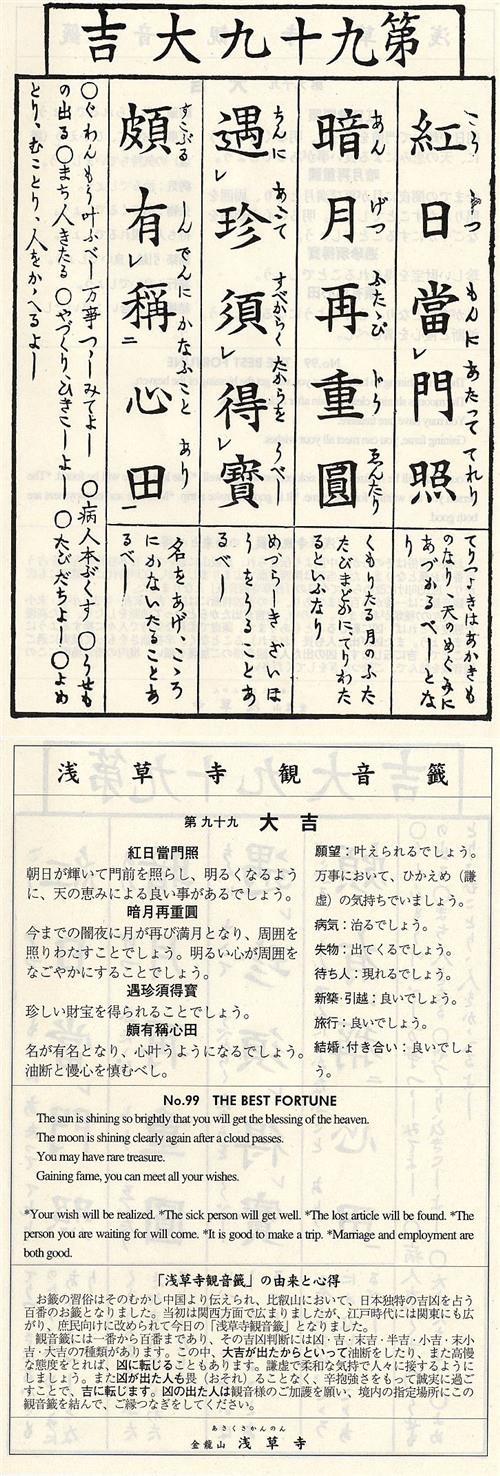 第九十九大吉
紅日當レ門照
こう じつ もんに あたつて てれり
てりつよきはあかきも
のなり、天のめぐみに
あづかるべしとな
り
暗月再重圓
あん げつ ふたゝび
くもりたる月のふた
たびまどかにてりわた
るといふなり
遇レ珍須レ得レ寶
ちんに あふて すべからく たからを うべし
めづらしきざいほ
うをうることあ
るべし
頗有レ稱二心田一
すこぶる しんでんに かなふこと あり
名をあげ、こゝろ
にかないたることあ
るべし
〇ぐわんもう叶ふべし 万事つゝしみてよし 〇病人本ぶくす 〇うせも
の出る 〇まち人きたる 〇やづくり、ひきこしよし 〇たびだちよし 〇よめ
とり、むことり、人をかゝへるよし
浅草寺観音籤
第九十九 大吉
紅日當門照
朝日が輝いて門前を照らし、明るくなるよう
に、天の恵みによる良い事があるでしょう。
暗月再重圓
今までの闇夜に月が再び満月となり、周囲を
照りわたすことでしょう。明るい心が周囲を
なごやかにすることでしょう。
遇珍須得寶
珍しい財宝を得られることでしょう。
頗有稱心田
名が有名となり、心叶うようになるでしょう。
油断と慢心を慎むべし。
願望：叶えられるでしょう。
万事において、ひかえめ（謙
虚）の気持ちでいましょう。
病気：治るでしょう。
失物：出てくるでしょう。
待ち人：現れるでしょう。
新築・引越：良いでしょう。
旅行：良いでしょう。
結婚・付き合い：良いでしょ
う。
No.99 THE BEST FORTUNE
The sun is shining so brightly that you will get the blessing of the heaven.
The moon is shining clearly again after a cloud passes.
You may have rare treasure.
Gaining fame, you can meet all your wishes.
*Your wish will be realized. *The sick person will get well. *The lost article will be found. *The
person you are waiting for will come. *It is good to make a trip. *Marriage and employment are
both good.
「浅草寺観音籤」の由来と心得
お籤の習俗はそのむかし中国より伝えられ、比叡山において、日本独特の吉凶を占う
百番のお籤となりました。当初は関西方面で広まりましたが、江戸時代には関東にも広
がり、庶民向けに改められて今日の「浅草寺観音籤」となりました。
観音籤には一番から百番まであり、その吉凶判断には凶・吉・末吉・半吉・小吉・末小
吉・大吉の7種類があります。この中、大吉が出たからといって油断をしたり、また高慢
な態度をとれば、凶に転じることもあります。謙虚で柔和な気持で人々に接するようにし
ましょう。また凶が出た人も畏（おそれ）ることなく、辛抱強さをもって誠実に過ご
すことで、吉に転じます。凶の出た人は観音様のご加護を願い、境内の指定場所にこの
観音籤を結んで、ご縁つなぎをしてください。
あさくさかんのん
金龍山 浅草寺